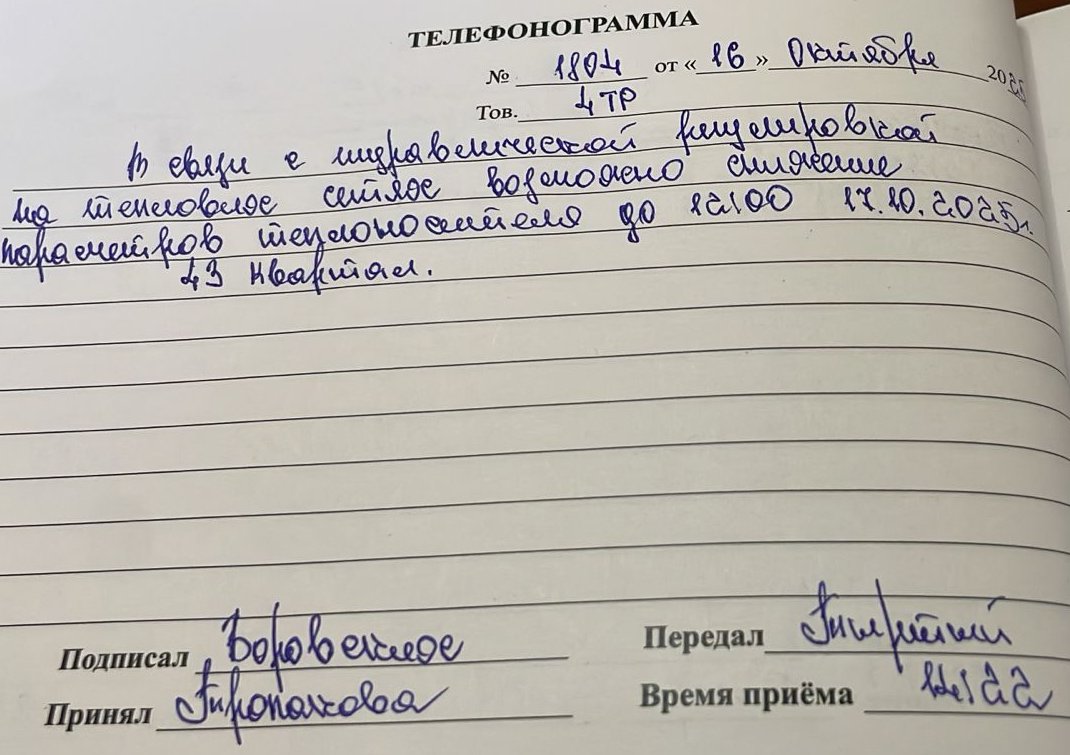 ТЕЛЕФОНОГРАММА
№ 1804 от «16» Октября 2025
Тов. 4 ТР
В связи с гидравлической регулировкой
на тепловых сетях возможно снижение
параметров теплоносителя до 12:00 17.10.2025г.
43 квартал.
Подписал Боровских Передал
Принял Время приёма